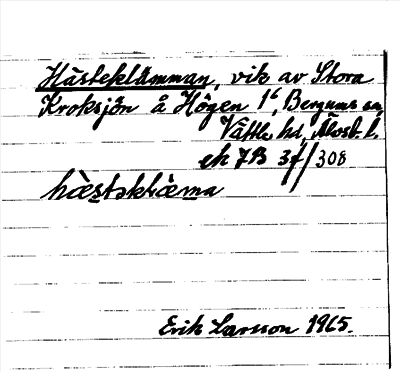 Hästeklämman, vik av Stora
Kroksjön å Högen 1⁶, Bergums sn,
Vättle hd, Älvsb. l.
ek 7B 3f/308
hæ̀stəklæ̀ma
Erik Larsson 1965.